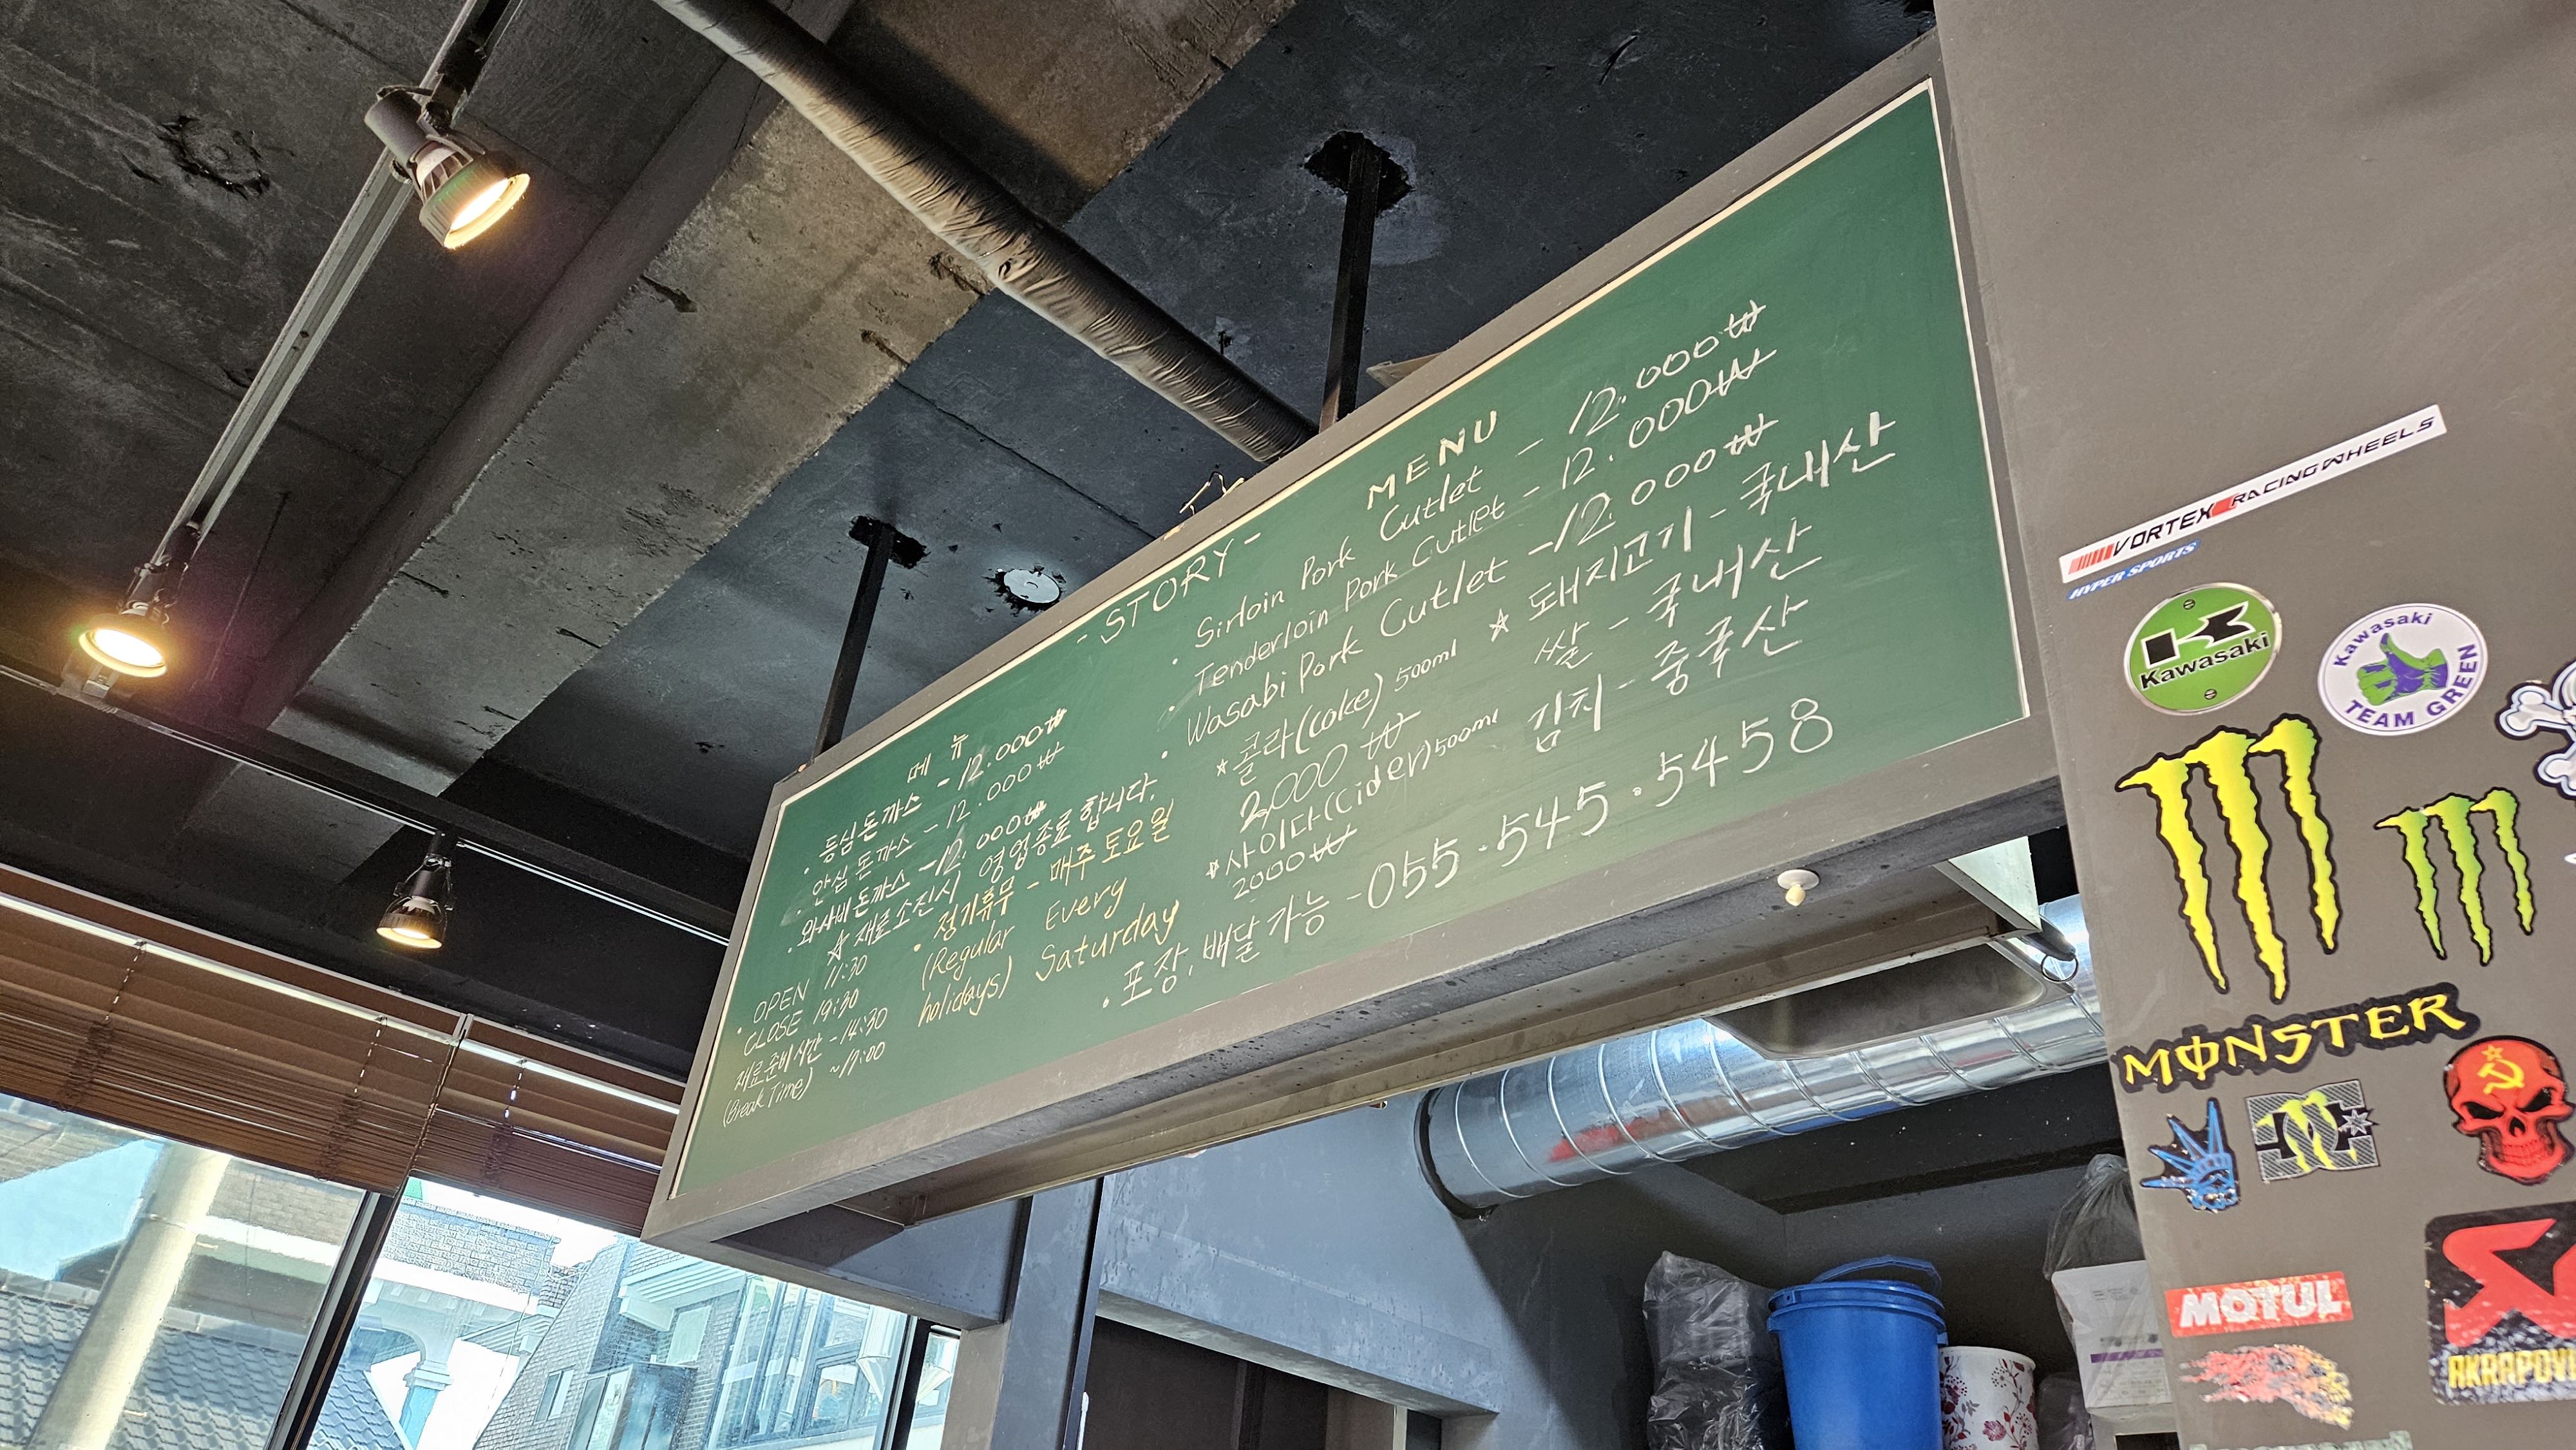 - STORY -
메 뉴
· 등심 돈까스 - 12.000₩
· 안심 돈까스 - 12.000₩
· 와사비 돈까스 - 12.000₩
☆ 재료 소진시 영업종료 합니다.
· OPEN 11:30
CLOSE 19:30
재료준비시간 - 14:30
(Break Time) ~17:00
· 정기휴무 - 매주 토요일
(Regular Every
holidays) Saturday
MENU
· Sirloin Pork Cutlet - 12.000₩
· Tenderloin Pork Cutlet - 12.000₩
· Wasabi Pork Cutlet - 12.000₩
* 콜라(coke) 500ml
2,000₩
* 사이다(Cider) 500ml
2000₩
☆ 돼지고기 - 국내산
쌀 - 국내산
김치 - 중국산
· 포장, 배달 가능 - 055.545.5458
VORTEX RACING WHEELS
HYPER SPORTS
Kawasaki
Kawasaki
TEAM GREEN
MONSTER
DC
MOTUL
AKRAPOVI